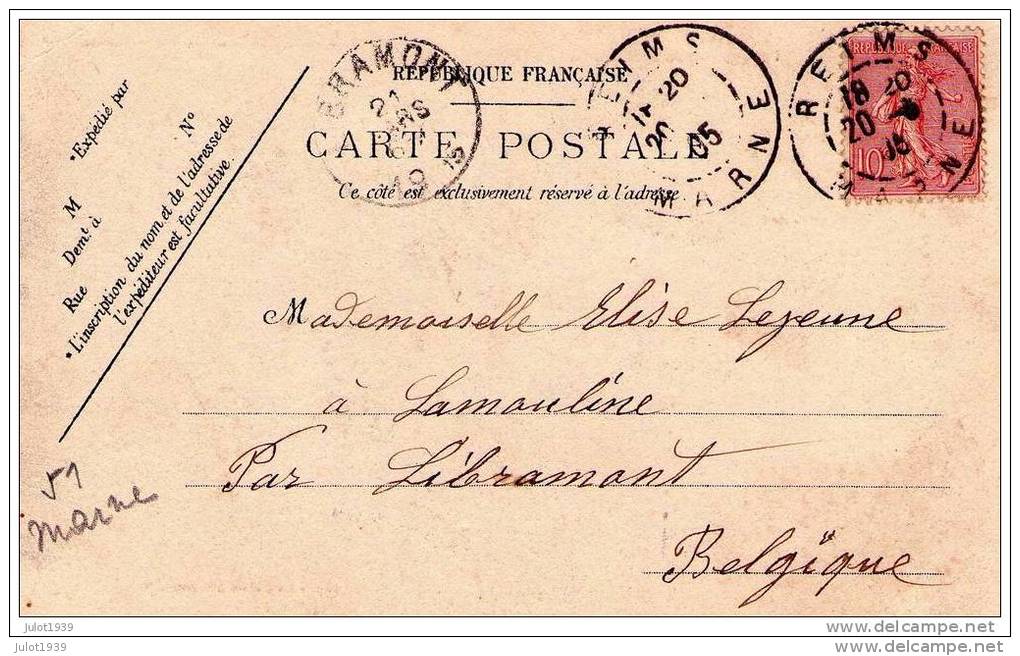 *Expédié par
N°
M
Demt à
Rue
*L'inscription du nom et de l'adresse de
l'expéditeur est facultative.
BRAMONT
21
MARS
19
RÉPUBLIQUE FRANÇAISE
CARTE POSTALE
Ce côté est exclusivement réservé à l'adresse.
REIMS
18 20
20 05
MARNE
REIMS
18 20
20 05
MARNE
REPUBLIQUE FRANÇAISE
10
Mademoiselle Elise Lejeune
à Lamouline
Par Libramont
Belgique
51
Marne
julot1939
julot1939
www.delcampe.net
www.delcampe.net